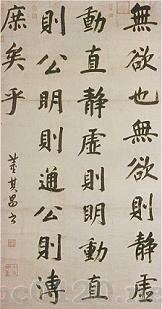 無欲也無欲則静虚
動直静虚則明動直
則公明則通公則溥
庶矣乎
董其昌書